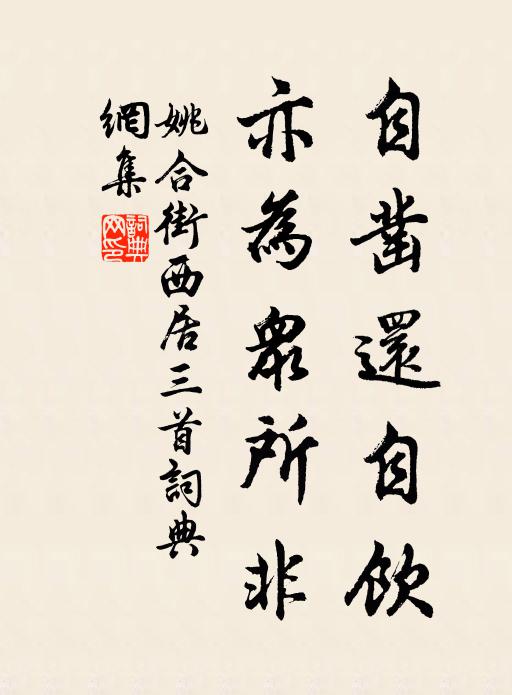 自鑿還自飲
亦為衆所非
姚合街西居三首詞典
網集
詞典網印